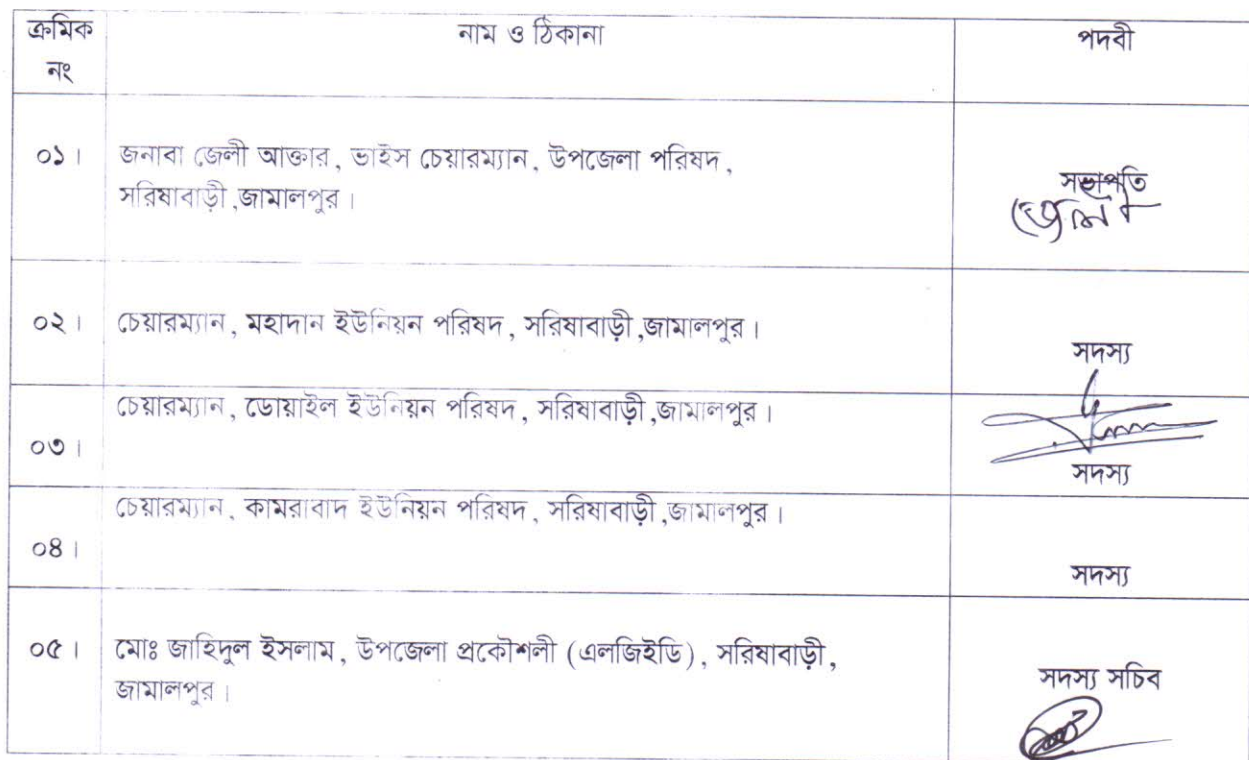 ক্রমিক নং নাম ও ঠিকানা পদবী
০১। জনাবা জেলী আক্তার, ভাইস চেয়ারম্যান, উপজেলা পরিষদ,
সরিষাবাড়ী,জামালপুর।
সভাপতি
জেলী
০২। চেয়ারম্যান, মহাদান ইউনিয়ন পরিষদ, সরিষাবাড়ী,জামালপুর।
সদস্য
চেয়ারম্যান, ডোয়াইল ইউনিয়ন পরিষদ, সরিষাবাড়ী,জামালপুর।
০৩।
সদস্য
চেয়ারম্যান, কামরাবাদ ইউনিয়ন পরিষদ, সরিষাবাড়ী,জামালপুর।
০৪।
সদস্য
০৫। মোঃ জাহিদুল ইসলাম, উপজেলা প্রকৌশলী (এলজিইডি), সরিষাবাড়ী,
জামালপুর।
সদস্য সচিব